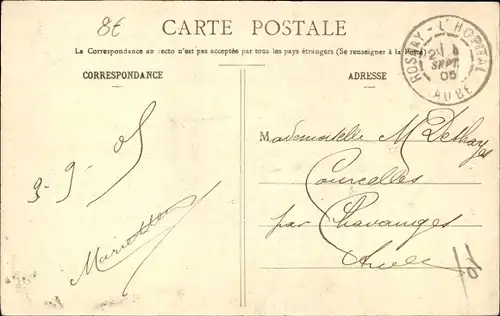 8€
CARTE POSTALE
La Correspondance au recto n'est pas acceptée par tous les pays étrangers (Se renseigner à la Poste)
CORRESPONDANCE
ADRESSE
ROSNAY-L'HOPITAL
SEPT.
05
AUBE
Mademoiselle M Dethayes
Courcelles
par Chavanges
Aube
9-9-05
10